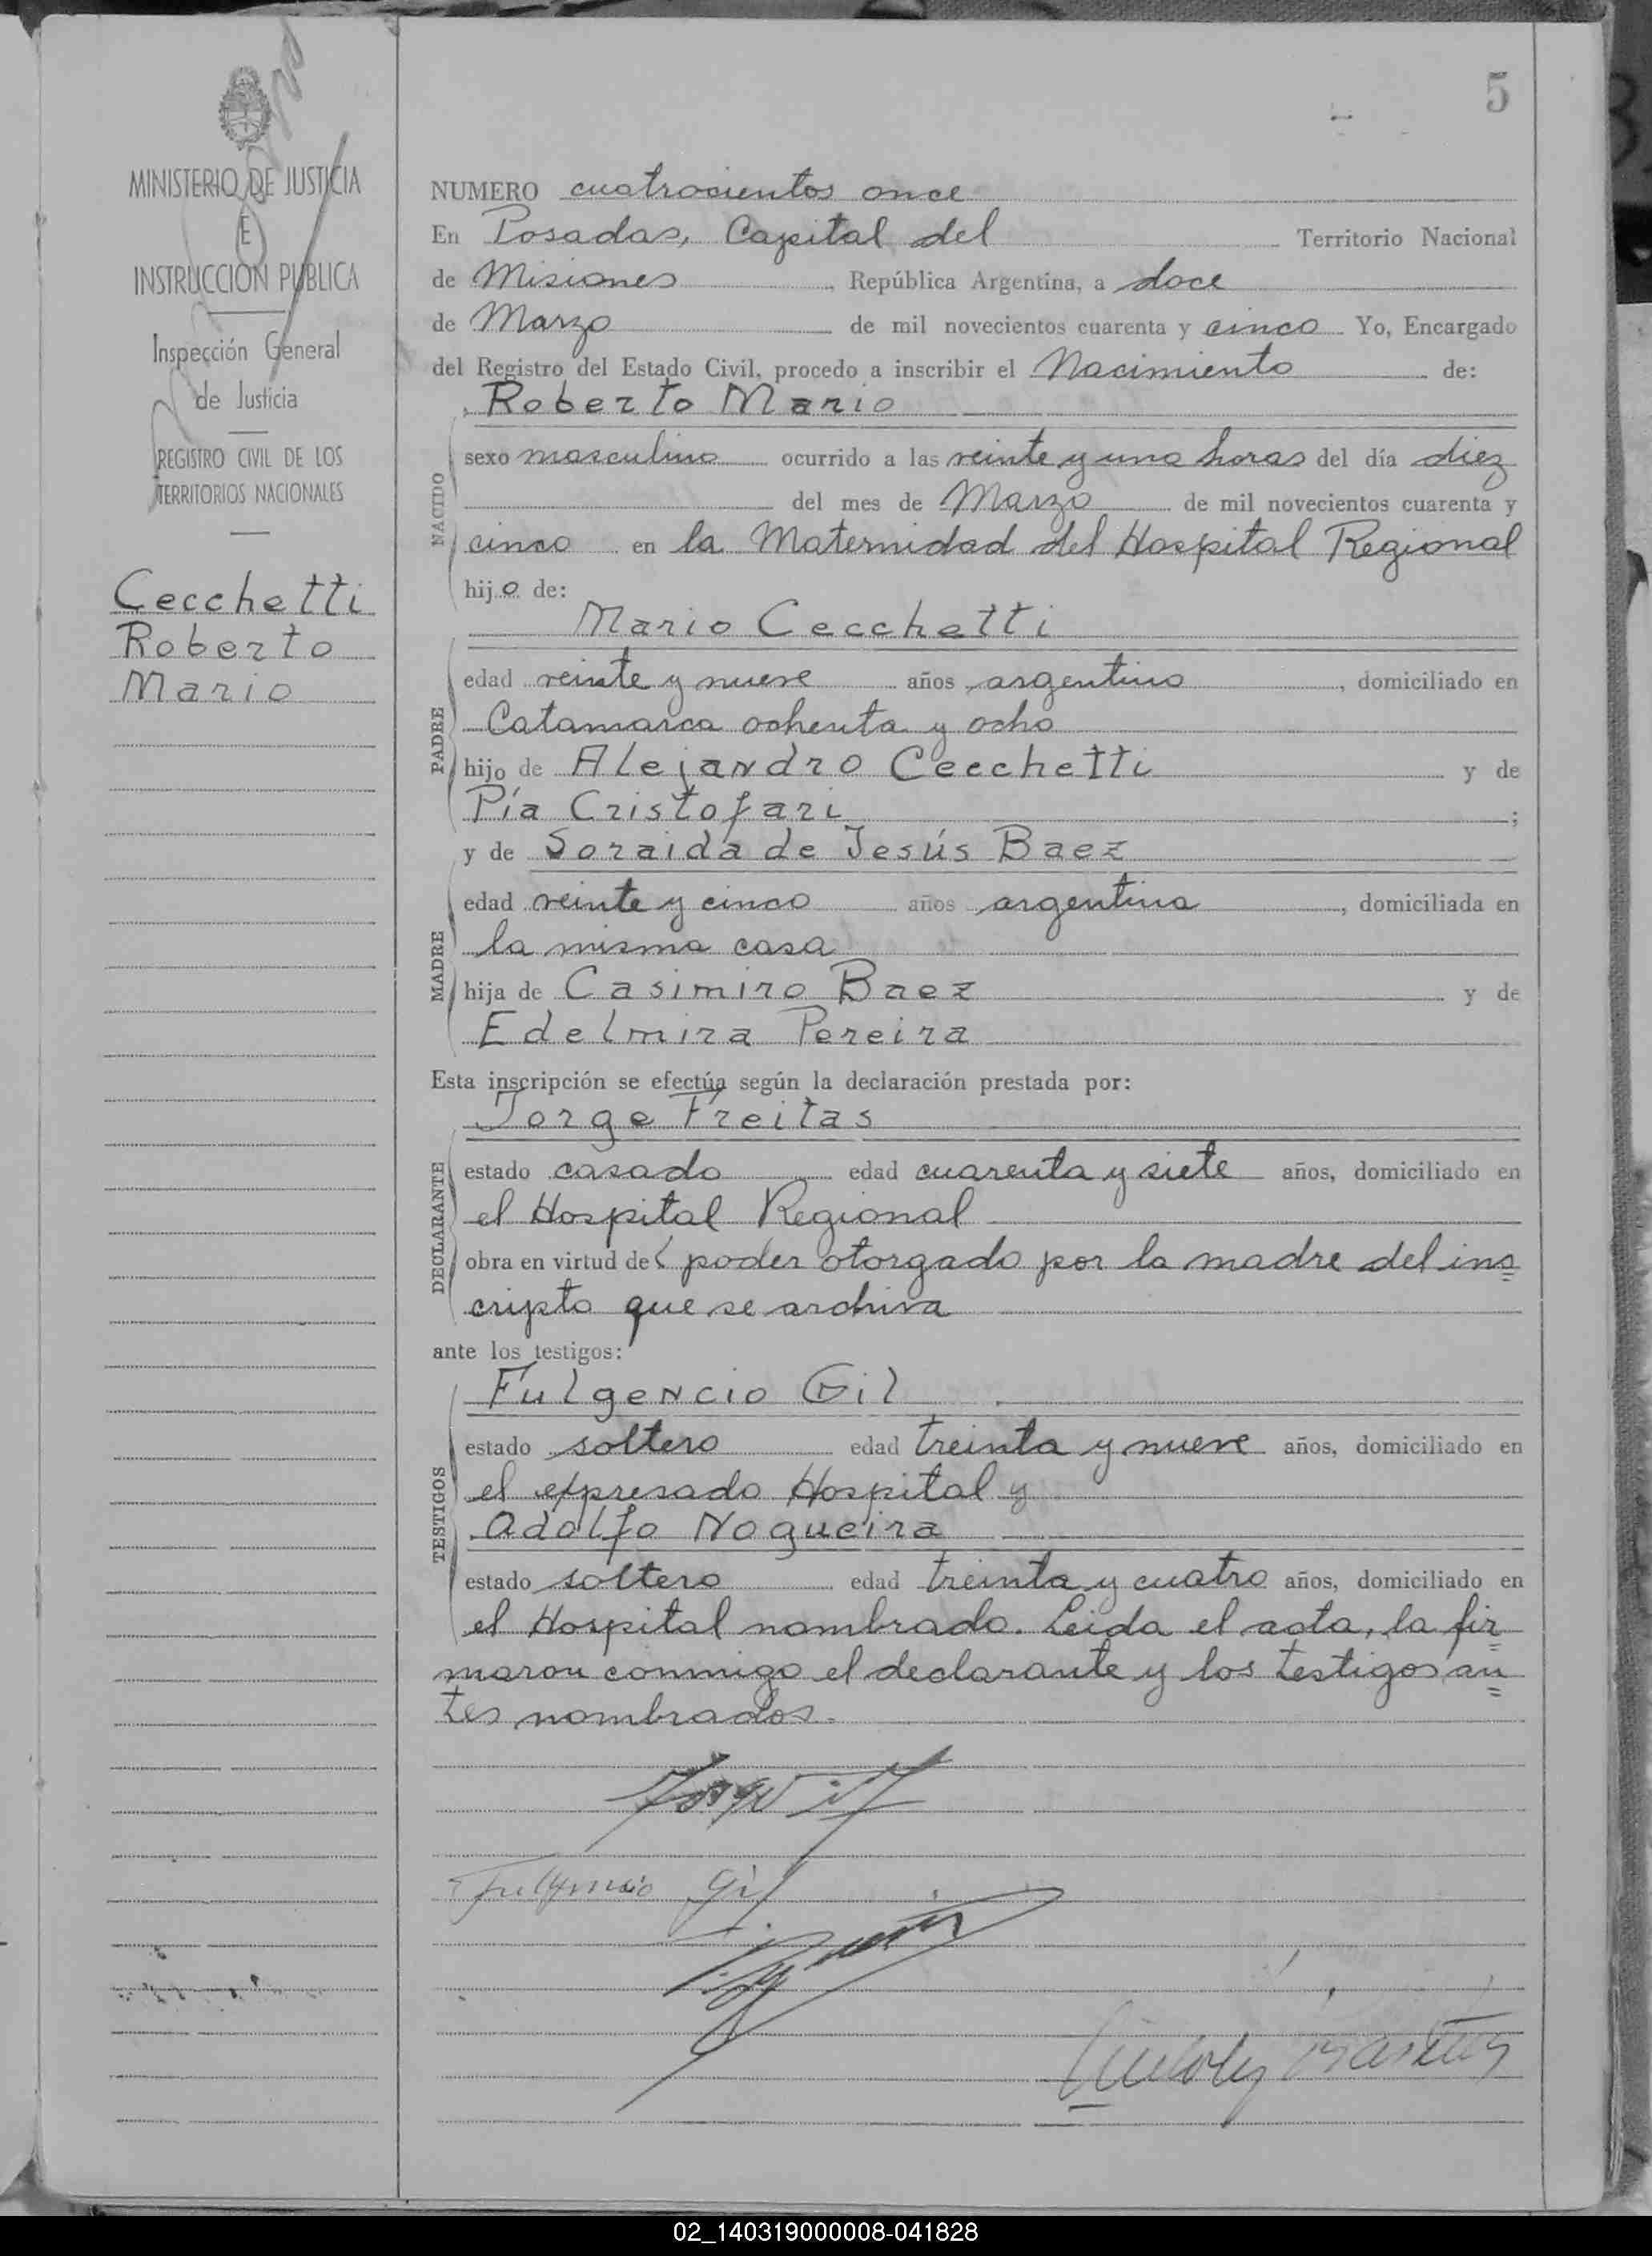 5
MINISTERIO DE JUSTICIA
E
INSTRUCCION PUBLICA
Inspección General
de Justicia
REGISTRO CIVIL DE LOS
TERRITORIOS NACIONALES
Cecchetti
Roberto
Mario
NUMERO cuatrocientos once
En Posadas, Capital del Territorio Nacional
de Misiones, República Argentina, a doce
de Marzo de mil novecientos cuarenta y cinco Yo, Encargado
del Registro del Estado Civil, procedo a inscribir el Nacimiento de:
Roberto Mario
NACIDO
sexo masculino ocurrido a las veinte y una horas del día diez
del mes de Marzo de mil novecientos cuarenta y
cinco en la Maternidad del Hospital Regional
hijo de:
Mario Cecchetti
PADRE
edad veinte y nueve años argentino, domiciliado en
Catamarca ochenta y ocho
hijo de Alejandro Cecchetti y de
Pía Cristofari;
y de Soraida de Jesús Baez
MADRE
edad veinte y cinco años argentina, domiciliada en
la misma casa
hija de Casimiro Baez y de
Edelmira Pereira
Esta inscripción se efectúa según la declaración prestada por:
Jorge Freitas
DECLARANTE
estado casado edad cuarenta y siete años, domiciliado en
el Hospital Regional
obra en virtud del poder otorgado por la madre del ins=
cripto que se archiva
ante los testigos:
Fulgencio Gil
TESTIGOS
estado soltero edad treinta y nueve años, domiciliado en
el expresado Hospital y
Adolfo Nogueira
estado soltero edad treinta y cuatro años, domiciliado en
el Hospital nombrado. Leida el acta, la fir=
maron conmigo el declarante y los testigos an=
tes nombrados.-
Fulgencio Gil
02_140319000008-041828